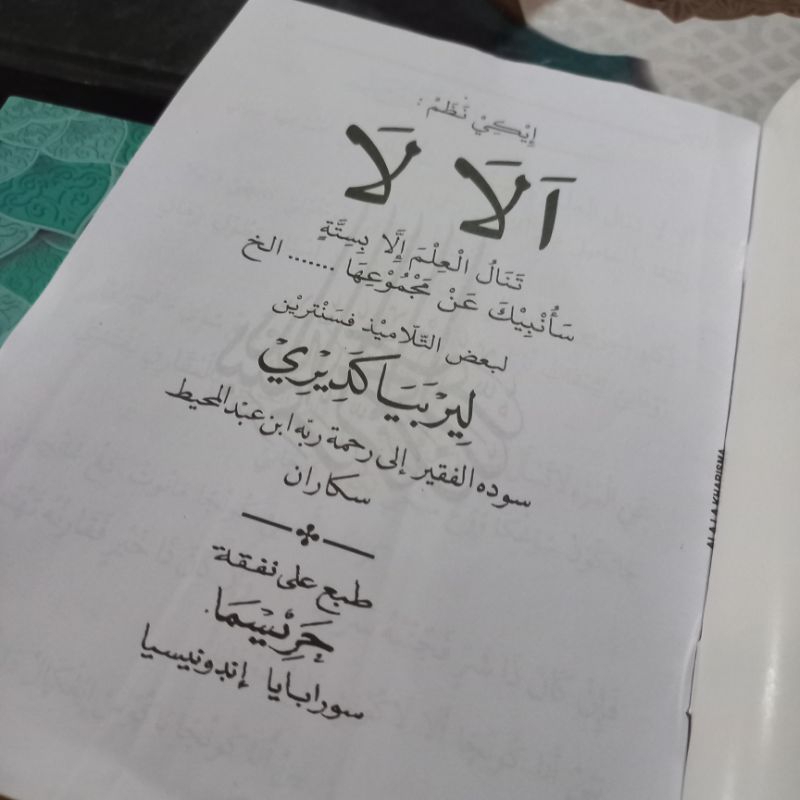 إِيْكِيْ نَظَمْ :
اَلَا لَا
تَنَالُ الْعِلْمَ إِلَّا بِسِتَّةٍ
سَأُنْبِيْكَ عَنْ مَجْمُوْعِهَا ....... الخ
لبعض التّلاميذ فسَنْتريْن
لِيرْبَيَا كَدِيْرِيْ
سوده الفقير إلى رحمة ربّه ابن عبد المحيط
سكاران
طبع على نفقة
خَرِيْسِمَا.
سورابايا إندونيسيا
ALA LA KHARISMA